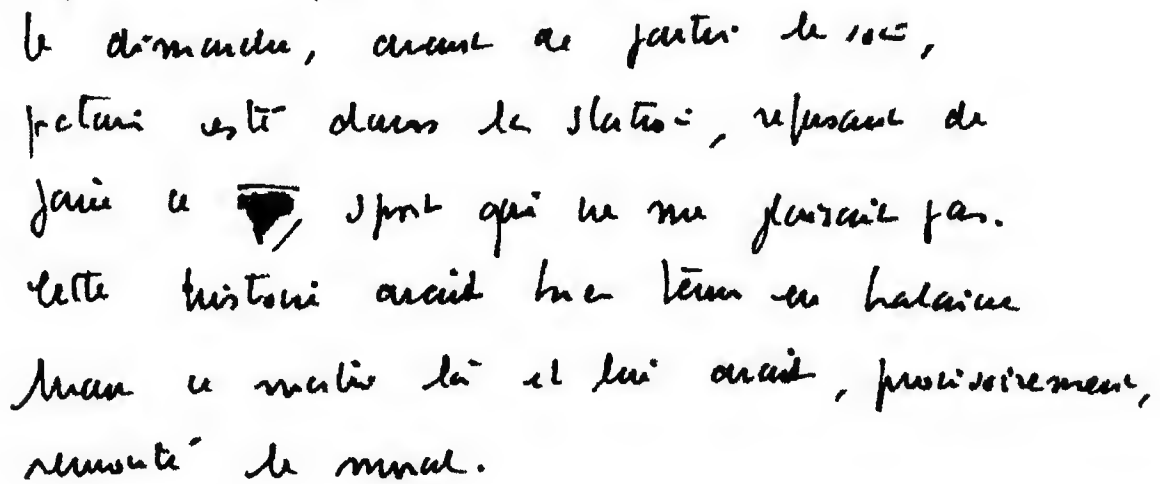 le dimanche, avant de partir le soir,
j'étais resté dans la station, refusant de
faire ce sport qui ne me plaisait pas.
Cette histoire avait bien tenu en haleine
Man ce matin là et lui avait, provisoirement,
remonté le moral.